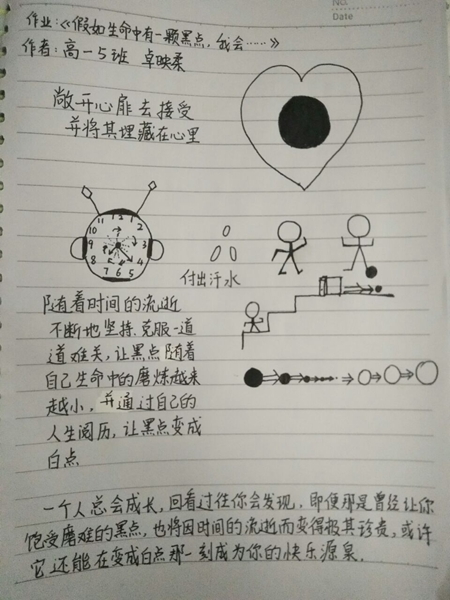 No.
Date
作业:《假如生命中有一颗黑点,我会……》
作者:高一5班 卓映柔
敞开心扉去接受
并将其埋藏在心里
12
1
2
3
4
5
6
7
8
9
10
11
付出汗水
随着时间的流逝
不断地坚持,克服一道
道难关,让黑点随着
自己生命中的磨炼越来
越小,并通过自己的
人生阅历,让黑点变成
白点
一个人总会成长,回看过往你会发现,即便那是曾经让你
饱受磨难的黑点,也将因时间的流逝而变得极其珍贵,或许
它还能在变成白点那一刻成为你的快乐源泉.